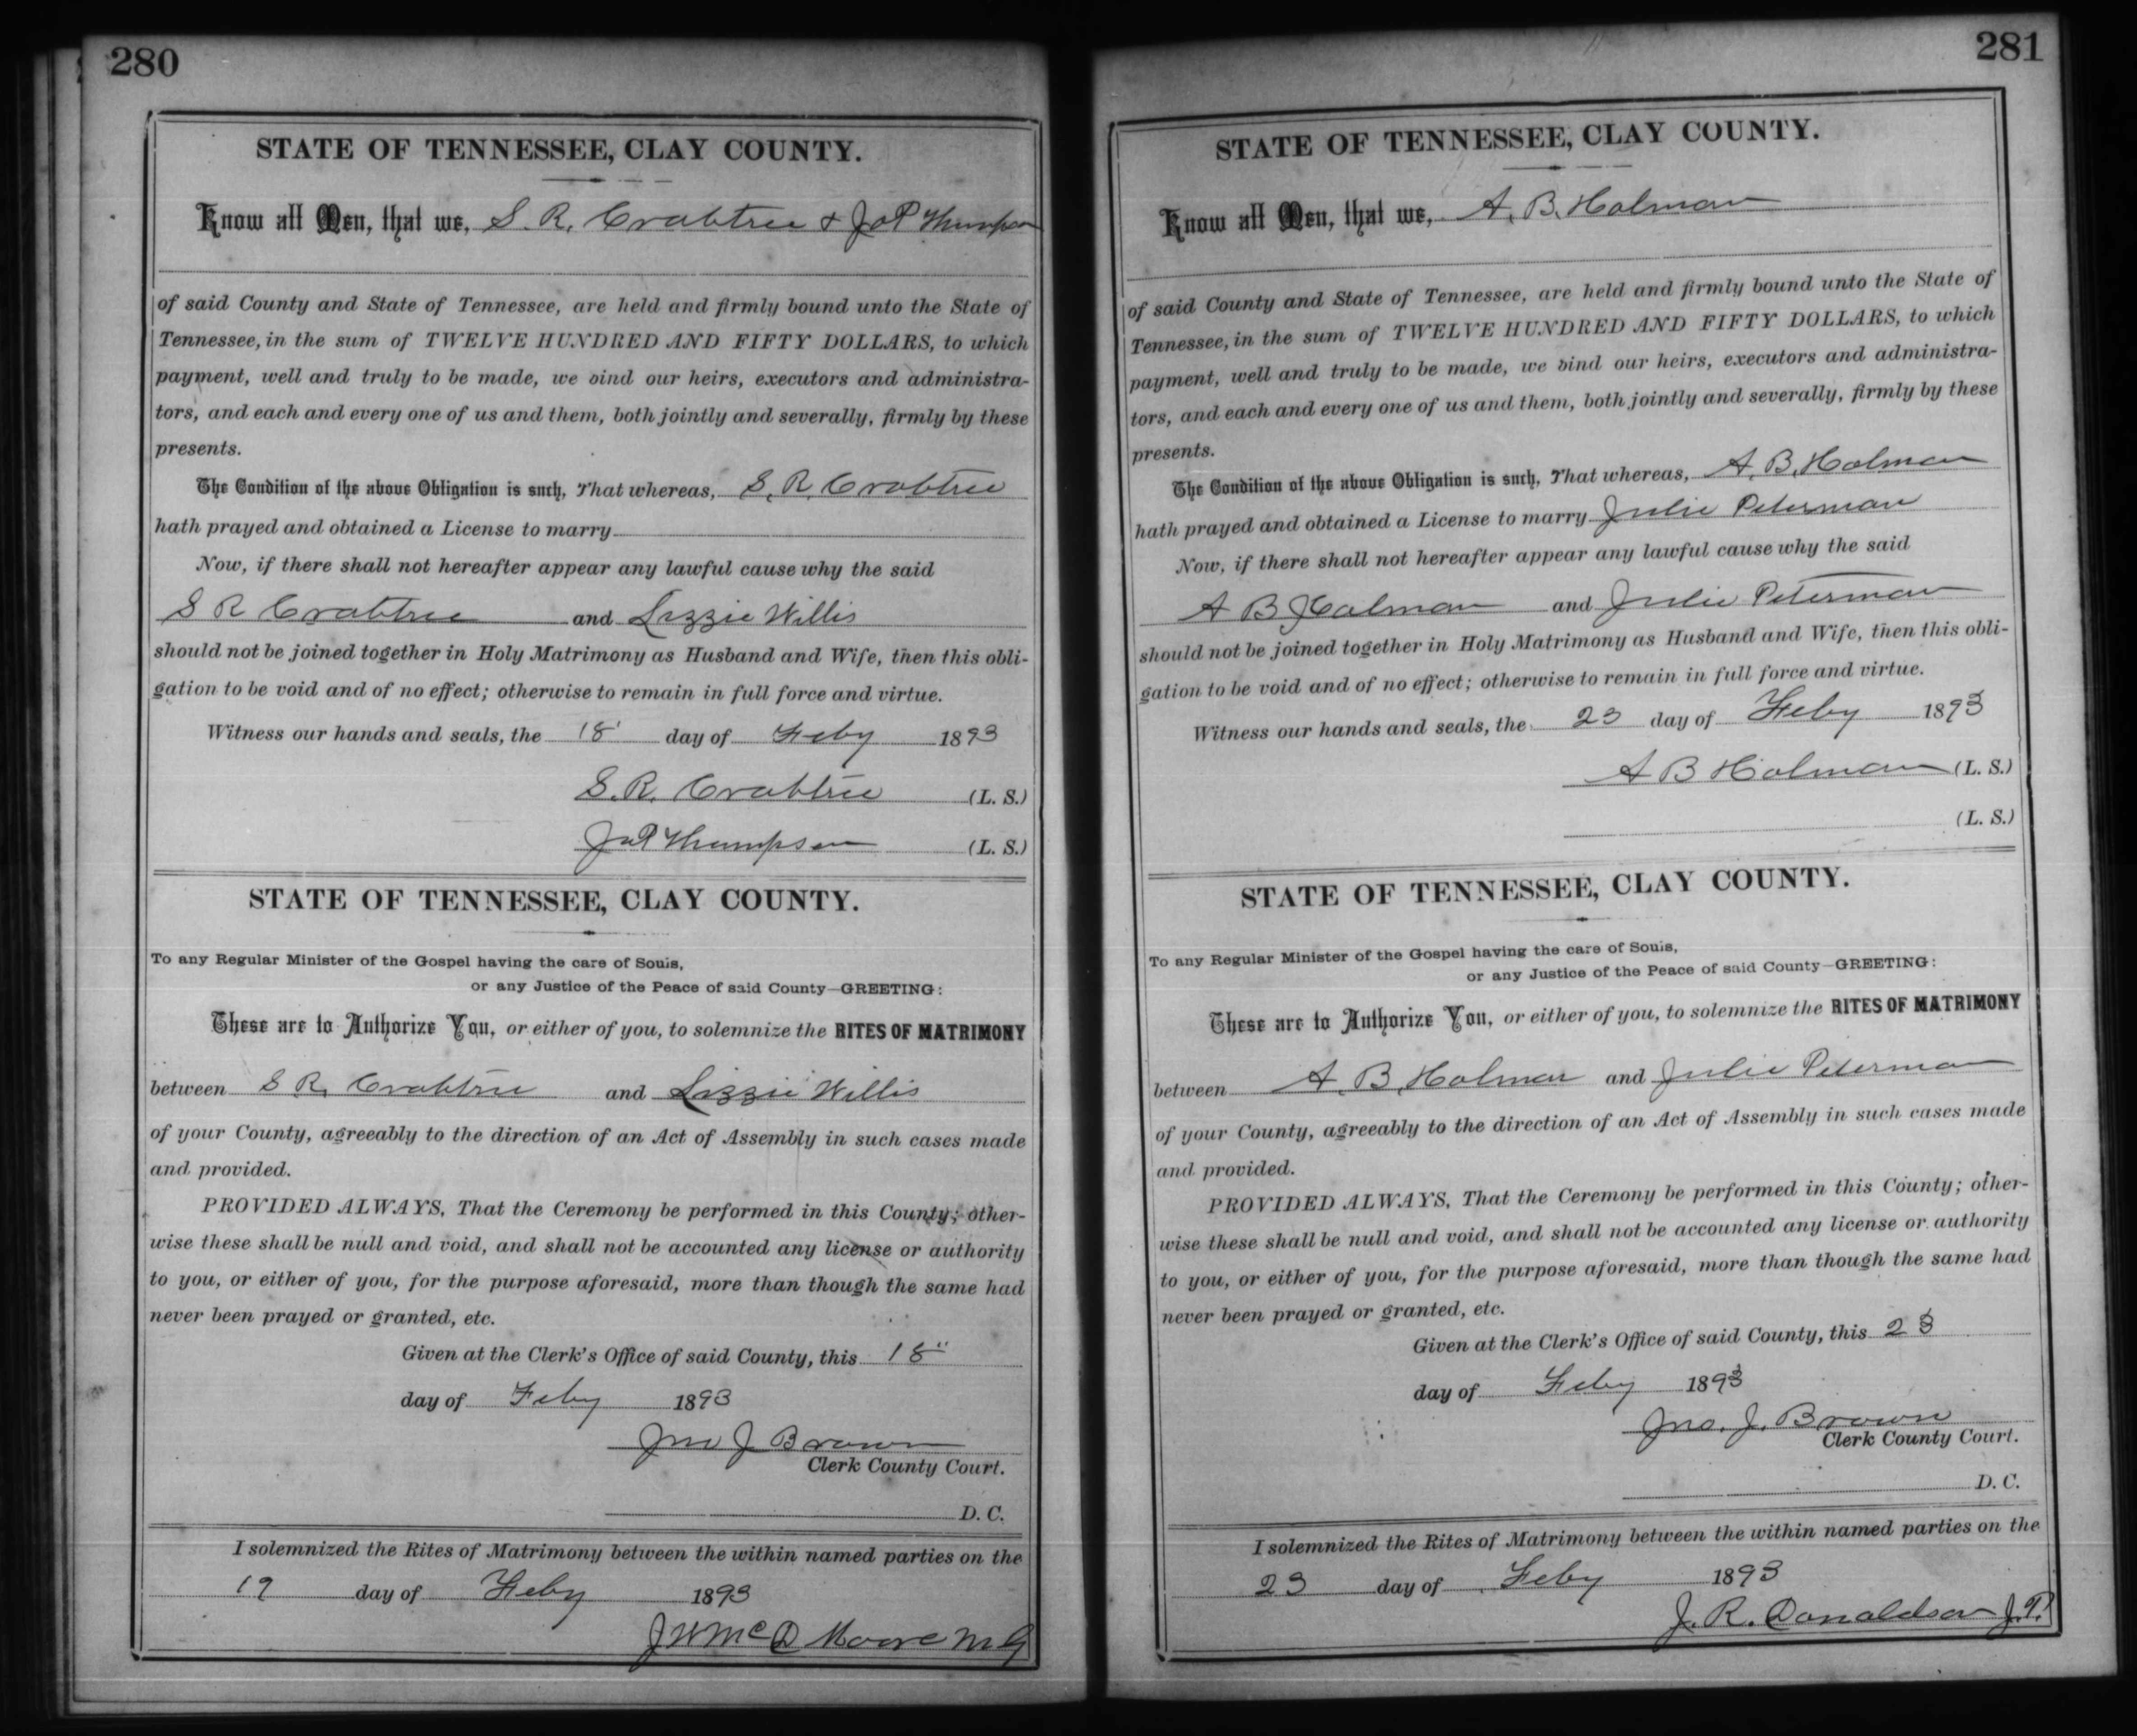 280
STATE OF TENNESSEE, CLAY COUNTY.
Know all Men, that we, S. R. Crabtree & Jo P Thompson
of said County and State of Tennessee, are held and firmly bound unto the State of
Tennessee, in the sum of TWELVE HUNDRED AND FIFTY DOLLARS, to which
payment, well and truly to be made, we bind our heirs, executors and administra-
tors, and each and every one of us and them, both jointly and severally, firmly by these
presents.
The Condition of the above Obligation is such, That whereas, S. R. Crabtree
hath prayed and obtained a License to marry
Now, if there shall not hereafter appear any lawful cause why the said
S R Crabtree and Lizzie Willis
should not be joined together in Holy Matrimony as Husband and Wife, then this obli-
gation to be void and of no effect; otherwise to remain in full force and virtue.
Witness our hands and seals, the 18 day of Feby 1893
S. R. Crabtree (L. S.)
Jo P Thompson (L. S.)
STATE OF TENNESSEE, CLAY COUNTY.
To any Regular Minister of the Gospel having the care of Souls,
or any Justice of the Peace of said County—GREETING:
These are to Authorize You, or either of you, to solemnize the RITES OF MATRIMONY
between S R. Crabtree and Lizzie Willis
of your County, agreeably to the direction of an Act of Assembly in such cases made
and provided.
PROVIDED ALWAYS, That the Ceremony be performed in this County; other-
wise these shall be null and void, and shall not be accounted any license or authority
to you, or either of you, for the purpose aforesaid, more than though the same had
never been prayed or granted, etc.
Given at the Clerk's Office of said County, this 18"
day of Feby 1893
Jno J Brown
Clerk County Court.
D. C.
I solemnized the Rites of Matrimony between the within named parties on the
19 day of Feby 1893
J W McD Moore M G
281
STATE OF TENNESSEE, CLAY COUNTY.
Know all Men, that we, A. B. Holman
of said County and State of Tennessee, are held and firmly bound unto the State of
Tennessee, in the sum of TWELVE HUNDRED AND FIFTY DOLLARS, to which
payment, well and truly to be made, we bind our heirs, executors and administra-
tors, and each and every one of us and them, both jointly and severally, firmly by these
presents.
The Condition of the above Obligation is such, That whereas, A. B. Holman
hath prayed and obtained a License to marry Julie Peterman
Now, if there shall not hereafter appear any lawful cause why the said
A B Holman and Julie Peterman
should not be joined together in Holy Matrimony as Husband and Wife, then this obli-
gation to be void and of no effect; otherwise to remain in full force and virtue.
Witness our hands and seals, the 23 day of Feby 1893
A B Holman (L. S.)
(L. S.)
STATE OF TENNESSEE, CLAY COUNTY.
To any Regular Minister of the Gospel having the care of Souls,
or any Justice of the Peace of said County—GREETING:
These are to Authorize You, or either of you, to solemnize the RITES OF MATRIMONY
between A. B. Holman and Julie Peterman
of your County, agreeably to the direction of an Act of Assembly in such cases made
and provided.
PROVIDED ALWAYS, That the Ceremony be performed in this County; other-
wise these shall be null and void, and shall not be accounted any license or authority
to you, or either of you, for the purpose aforesaid, more than though the same had
never been prayed or granted, etc.
Given at the Clerk's Office of said County, this 23
day of Feby 1893
Jno. J. Brown
Clerk County Court.
D. C.
I solemnized the Rites of Matrimony between the within named parties on the
23 day of Feby 1893
J. R. Donaldson J. P.